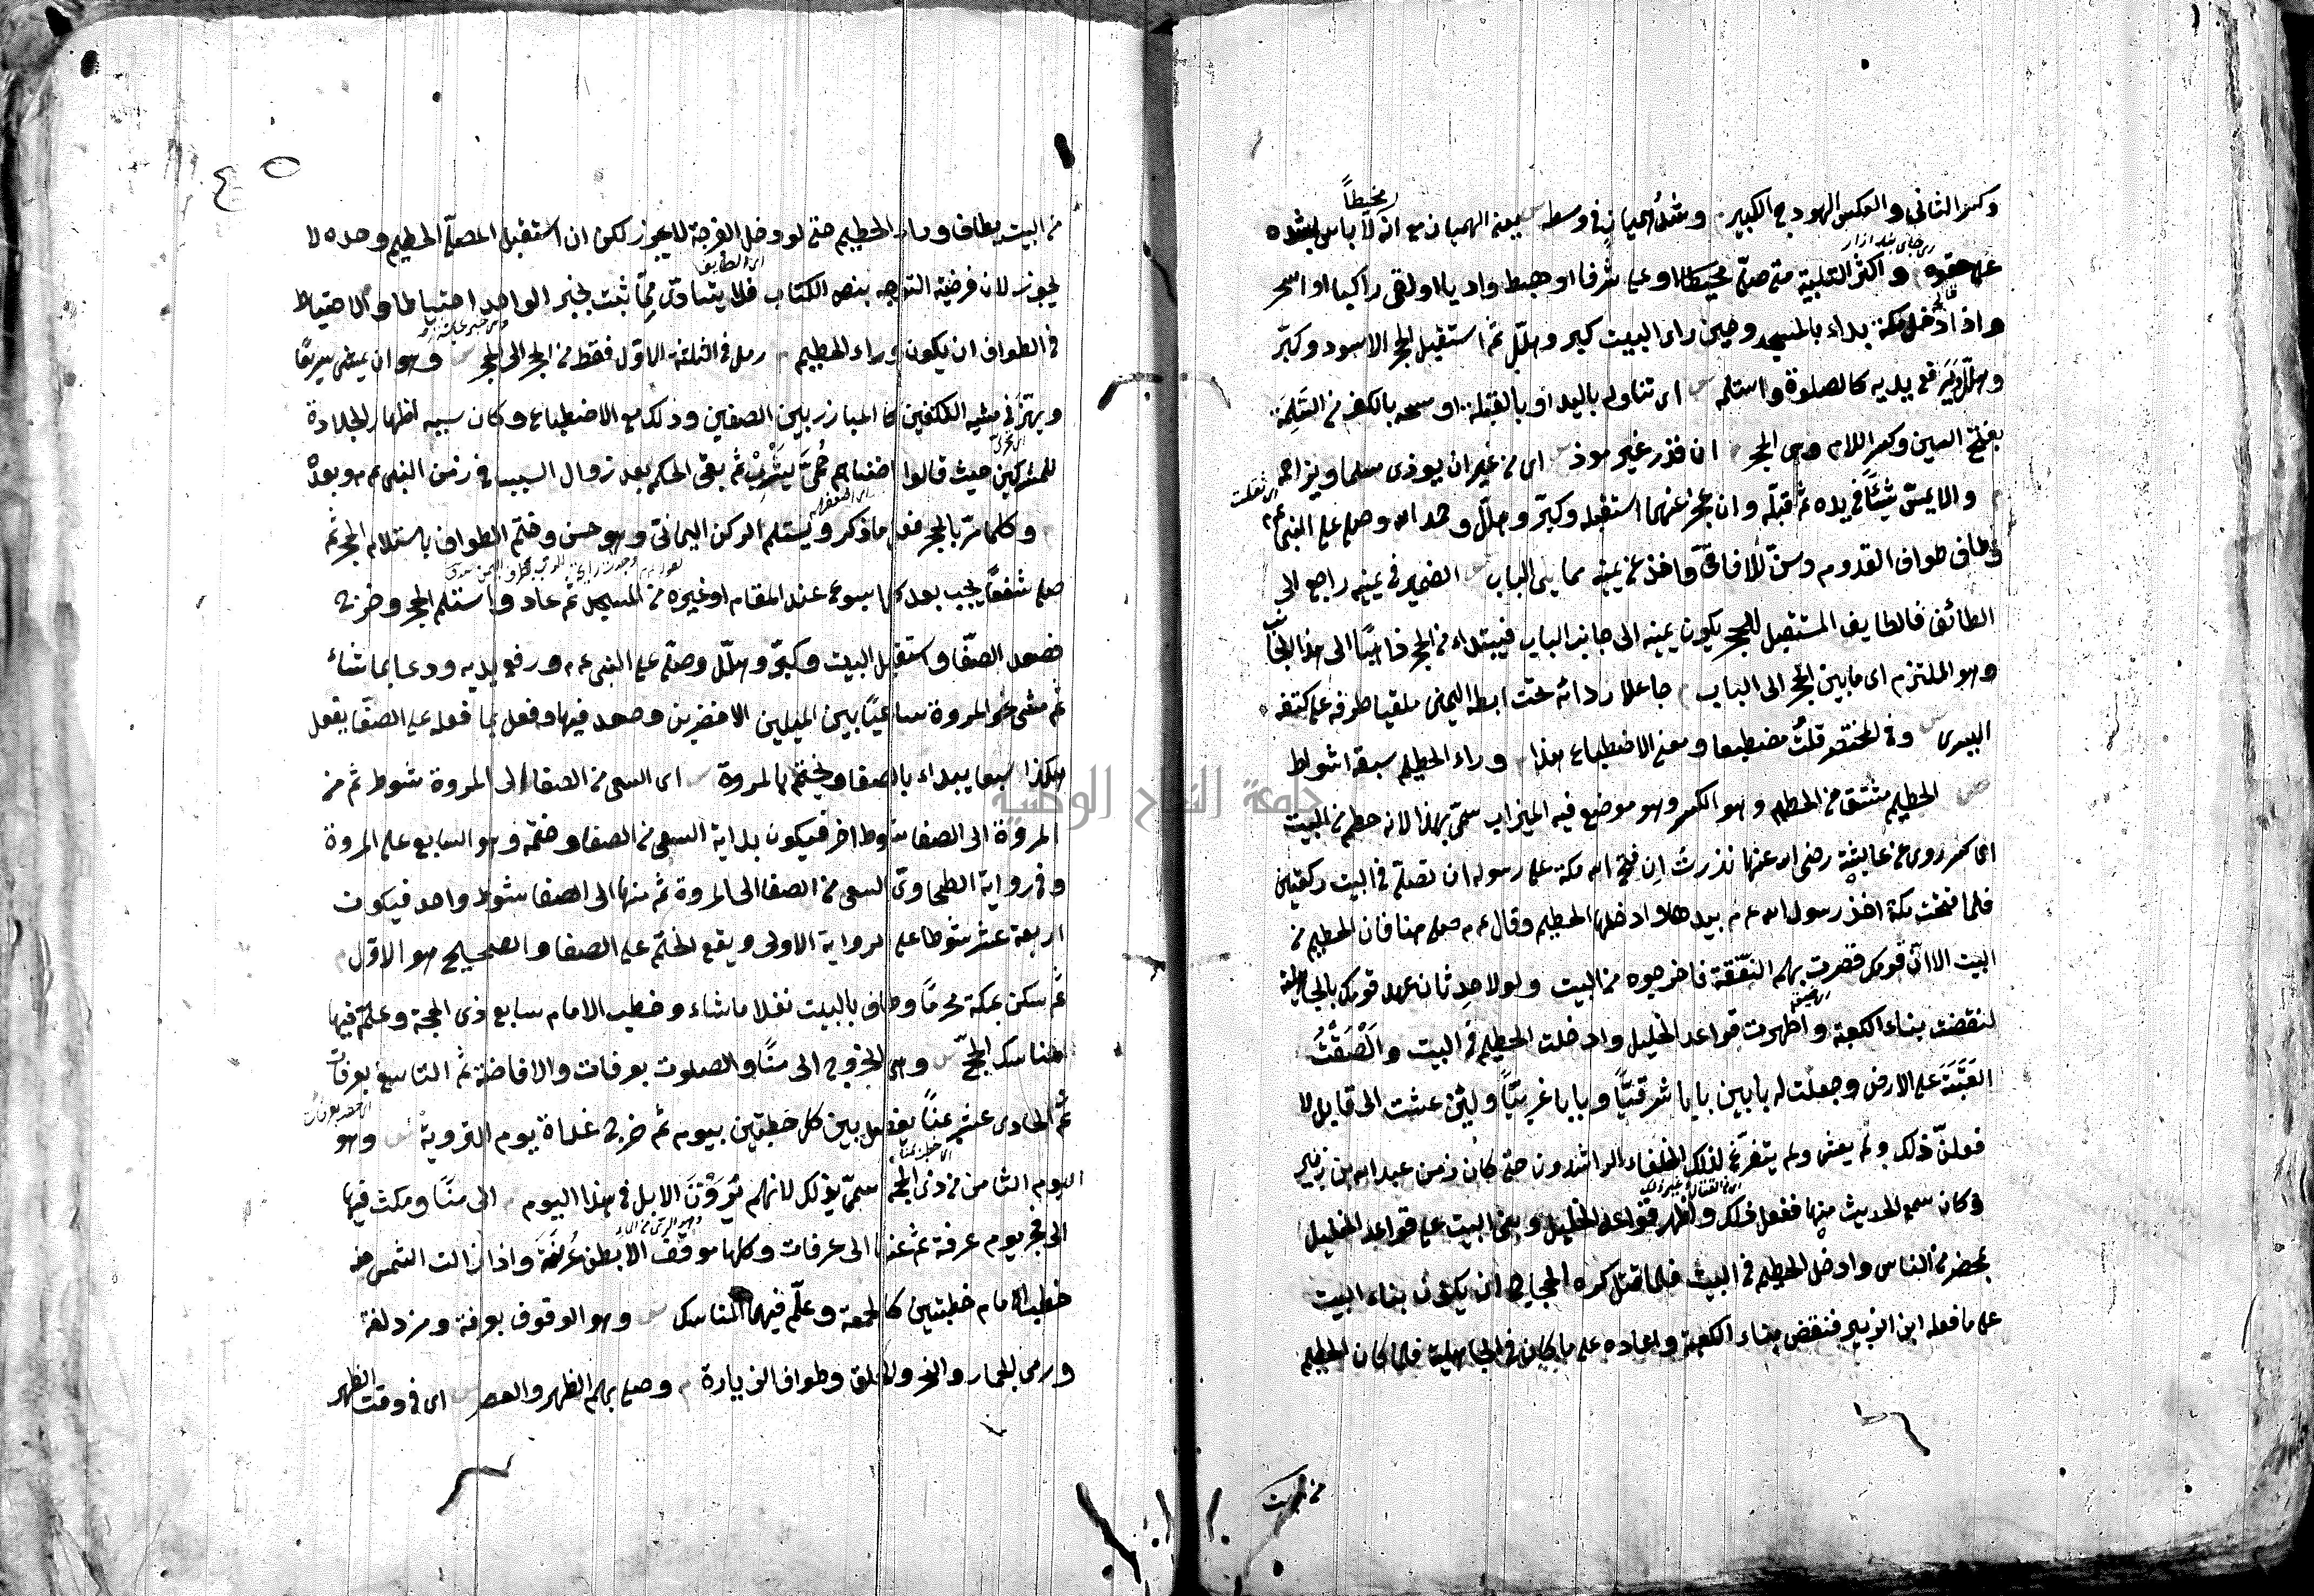 وكسر الثاني والعكس الهودج الكبير وشد هميان في وسطه يعني الهميان مع انه لا بأس بشده
مخيطاً
على حقوه واكثر التلبية متى صلى او علا شرفا او هبط واديا او لقى راكبا او اسحر
واذا دخل مكة بداء بالمسجد وحين راى البيت كبر وهلّل ثم استقبل الحجر الاسود وكبّر
وهلّل يرفع يديه كالصلوة واستلمه اى تناوله باليد او بالقبلة او مسحه بالكف من السَلِمَة
بفتح السين وكسر اللام وهى الحجر ان قدر غير موذ اى من غير ان يوذى مسلما ويزاحمه
والا يمسّ شيئًا في يده ثم قبّله وان عجز عنهما استقبله وكبّر وهلّل وحمد الله وصلى على النبى عم
وطاف طواف القدوم وسنّ للافاقى واخذ عن يمينه مما يلى الباب الضمير في يمينه راجع الى
الطائف فالطايف المستقبل للحجر يكون يمينه الى جانب الباب فيبتداء من الحجر ذاهبًا الى هذا الجانب
وهو الملتزم اى ما بين الحجر الى الباب جاعلا ردائه تحت ابطه اليمنى ملقيا طرفه على كتفه
اليسرى وفى المختصر قلتُ مضطبعا ومعنى الاضطباع هذا وراء الحطيم سبعة اشواط
الحطيم مشتق من الحطم وهو الكسر وهو موضع فيه الميزاب سمّى بهذا لانه حطم من البيت
اى كسر روى عن عايشة رضى الله عنها نذرتْ اِن فتح الله مكة على رسوله ان تصلّى في البيت ركعتين
فلما فتحت مكة اخذ رسول الله عم بيدها وادخلها الحطيم وقال عم صلى هنا فان الحطيم من
البيت الا انّ قومك قصرت بهم النَفَقة فاخرجوه من البيت ولولا حدثان عهد قومك بالجاهلية
لنقضت بناء الكعبة واظهرت قواعد الخليل وادخلت الحطيم في البيت واَلْصَقْتُ
العَتَبَةَ على الارض وجعلت له بابين بابا شرقيّاً وبابا غربيّاً ولئن عشت الى قابل لا
فعلنّ ذلك ولم يعش ولم يتفرّغ لذلك الخلفاء الراشدون حتى كان زمن عبد الله بن زبير
وكان سمع الحديث منها ففعل ذلك واظهر قواعد الخليل وبنى البيت على قواعد الخليل
بمحضر من الناس وادخل الحطيم في البيت فلما قتل كره الحجاج ان يكون بناء البيت
على ما فعله ابن الزبير فنقض بناء الكعبة واعاده على ما كان في الجاهلية فلما كان الحطيم
من البيت
من البيت يطاف وراء الحطيم حتى لو دخل الفرجة لا يجوز لكن ان استقبل المصلّى الحطيم وحده لا
يجوز لان فرضية التوجه بنص الكتاب فلا يتأدّى بما ثبت بخبر الواحد احتياطا والاحتياط
في الطواف ان يكون وراء الحطيم رمل في الثلثة الاوّل فقط من الحجر الى الحجر وهو ان يمشى سريعًا
ويهزّ في مشيه الكتفين كالمبارز بين الصفين وذلك مع الاضطباع وكان سببه اظهار الجلادة
للمشركين حيث قالوا اضناهم حُمَّى يَثْرِبْ ثم بقى الحكم بعد زوال السبب في زمن النبى عم وبعده
وكلما مرّ بالحجر فعل ما ذكر ويستلم الركن اليمانىّ وهو حسن وختم الطواف باستلام الحجر ثم
صلى شفعًا يجب بعد كل اسبوع عند المقام او غيره من المسجد ثم عاد واستلم الحجر وخرج
فصعد الصفا واستقبل البيت وكبّر وهلّل وصلّى على النبى عم ورفع يديه ودعا بما شاء
ثم مشى نحو المروة ساعيًا بين الميلين الاخضرين وصعد فيها وفعل ما فعله على الصفا يفعل
هكذا سبعا يبداء بالصفا ويختم بالمروة اى السعى من الصفا الى المروة شوط ثم من
المروة الى الصفا شوط اخر فيكون بداية السعى من الصفا وختمه وهو السابع على المروة
وفى رواية الطحاوىّ السعى من الصفا الى المروة ثم منها الى الصفا شوط واحد فيكون
اربعة عشر شوطا على الرواية الاولى ويقع الختم على الصفا والصحيح هو الاوّل
ثم سكن بمكة محرمًا وطاف بالبيت نفلا ما شاء وخطب الامام سابع ذى الحجة وعلّم فيها
المناسك الحج وهى الخروج الى منًا والصلوت بعرفات والافاضة ثم التاسع بعرفات
ثم الحادى عشر بمنًا يفصل بين كل خطبتين بيوم ثم خرج غداة يوم التروية وهو
اليوم الثامن من ذى الحجة سمّى بذلك لانهم يُرَوُّنَ الابل في هذا اليوم الى منًا ومكث فيها
الى فجر يوم عرفة ثم منها الى عرفات وكلها موقف الا بطن عُرَنَةَ واذا زالت الشمس منه
خطب الامام خطبتين كالجمعة وعلّم فيهما المناسك وهو الوقوف بعرفة ومزدلفة
ورمى الجمار والنحر والحلق وطواف الزيارة وصلى بهم الظهر والعصر اى في وقت الظهر
جامعة النجاح الوطنية